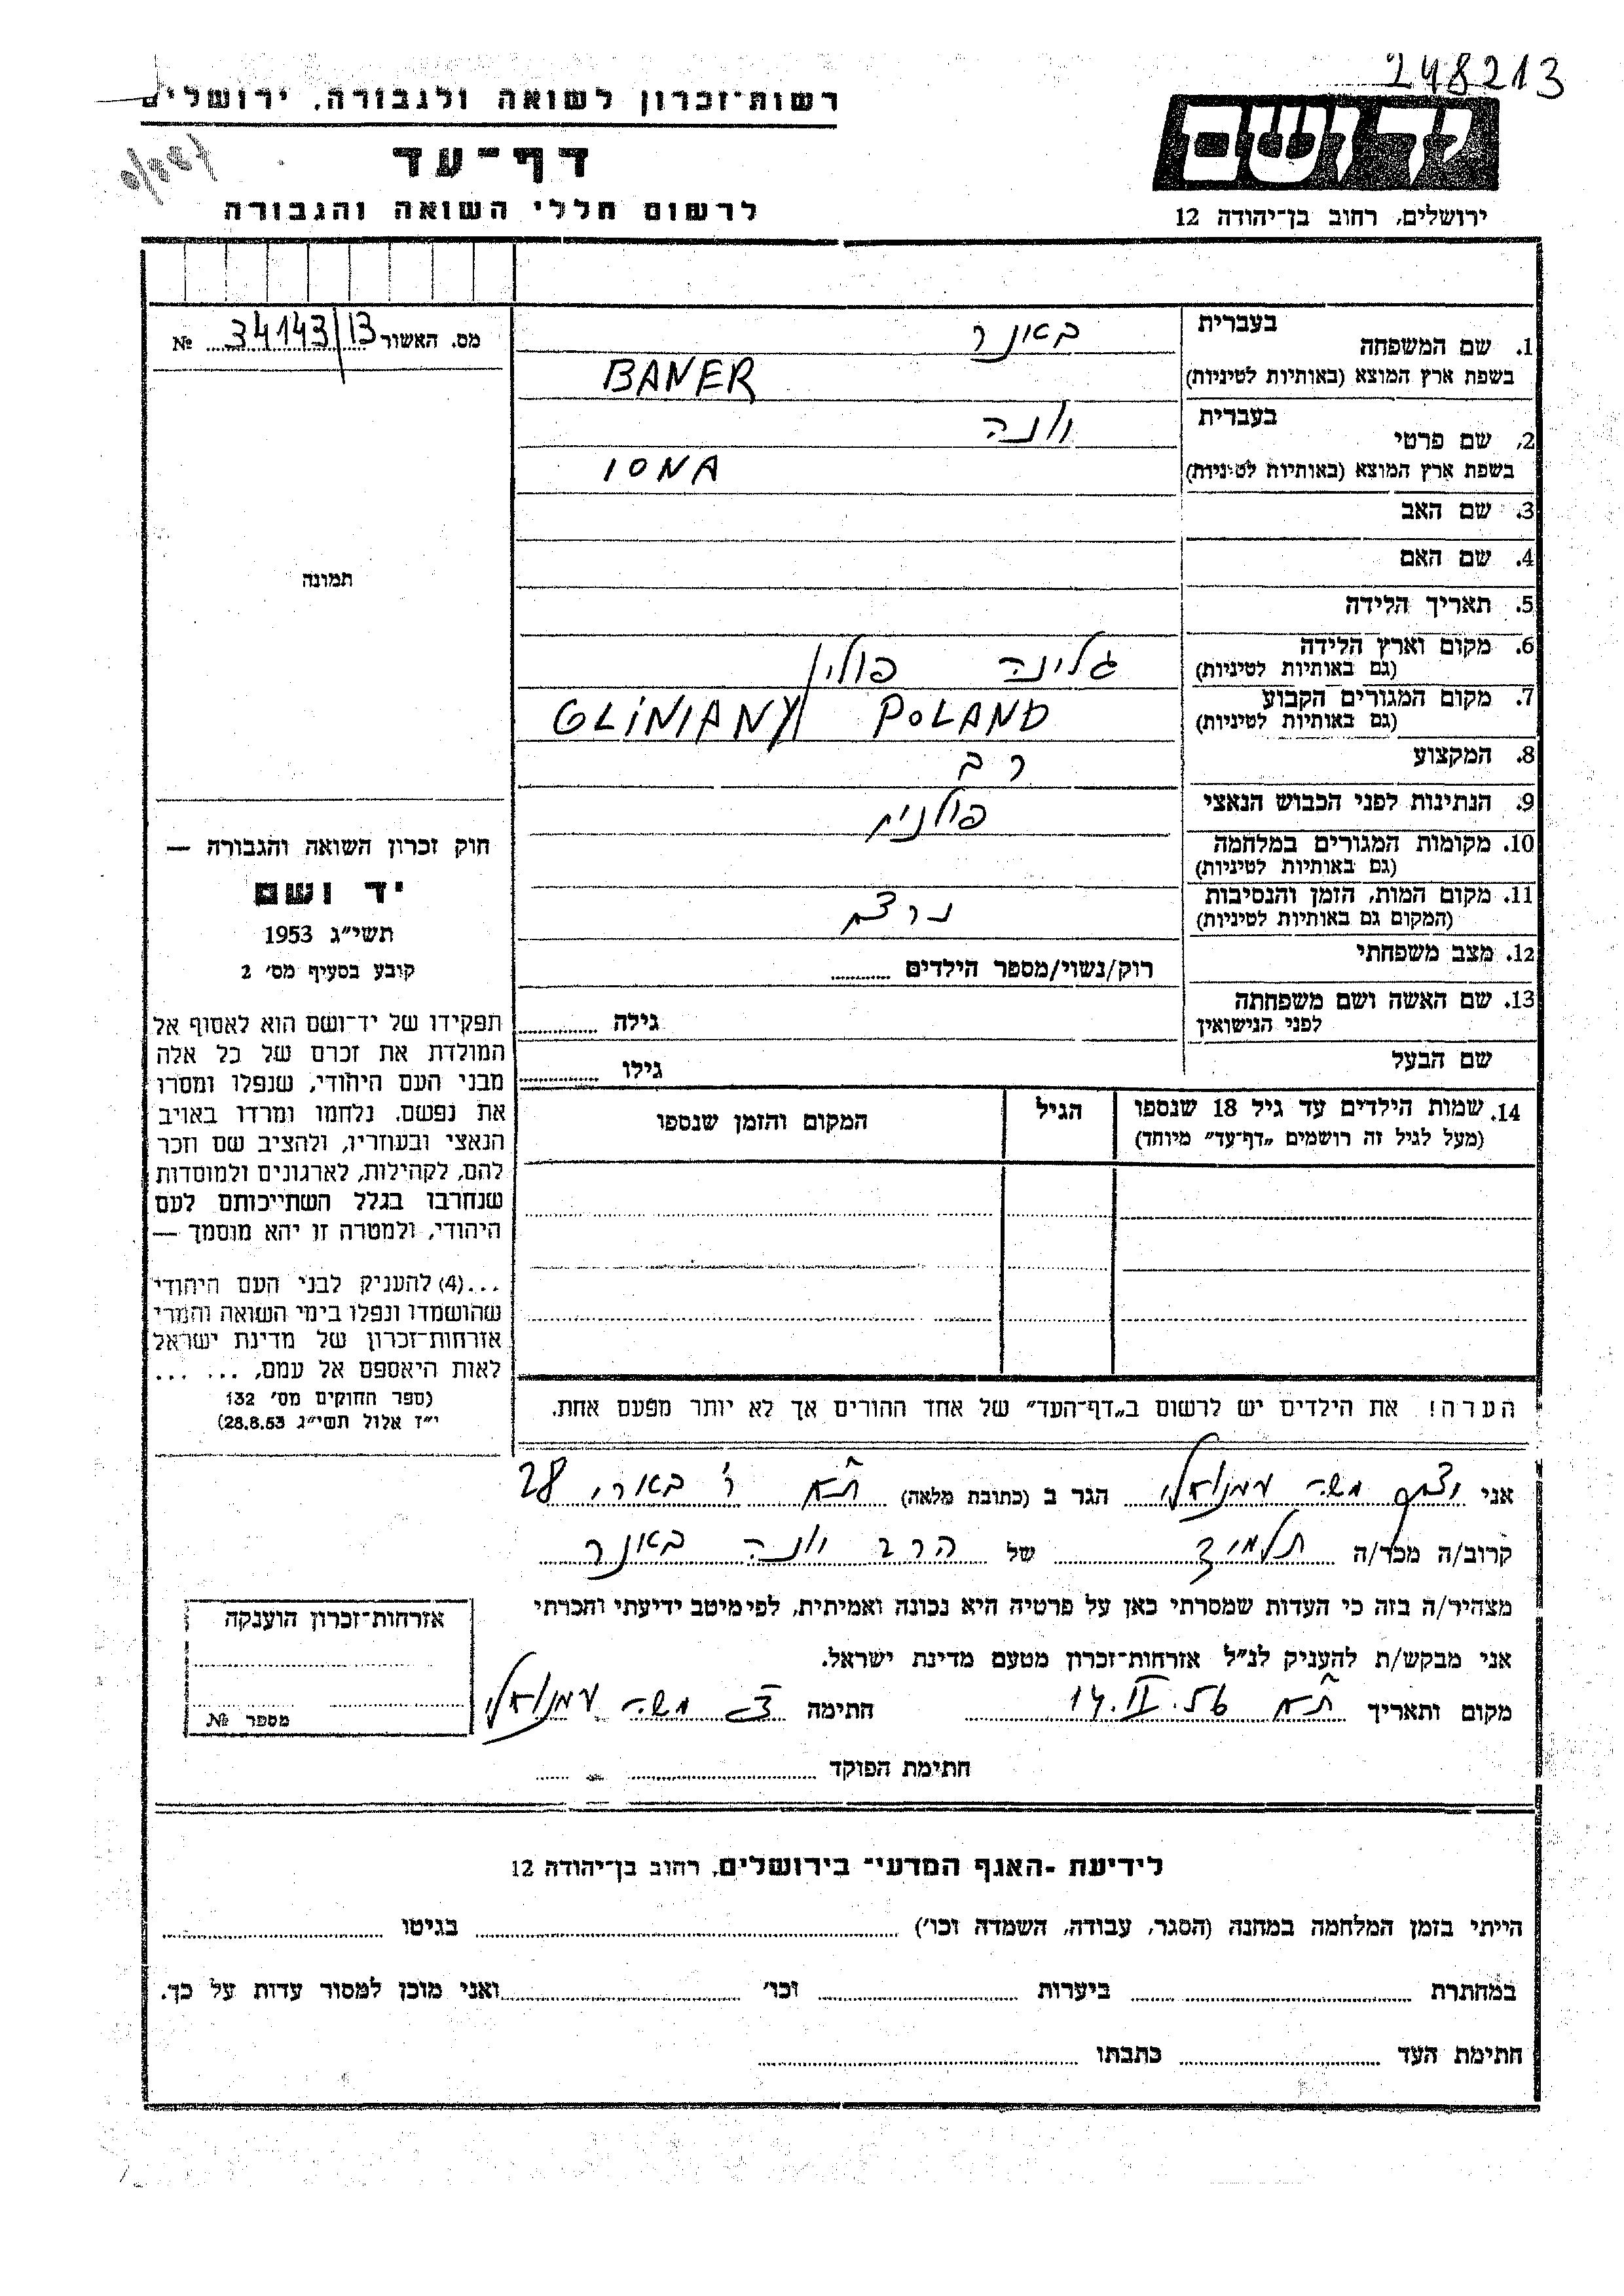 248213
יד ושם
ירושלים, רחוב בן־יהודה 12
רשות־זכרון לשואה ולגבורה, ירושלים
דף־עד
לרשום חללי השואה והגבורה
מס. האשור 34143/13 №
תמונה
1. שם המשפחה
בעברית באנר
בשפת ארץ המוצא (באותיות לטיניות) BANER
2. שם פרטי
בעברית יונה
בשפת ארץ המוצא (באותיות לטיניות) IONA
3. שם האב
4. שם האם
5. תאריך הלידה
6. מקום וארץ הלידה
(גם באותיות לטיניות) גלינה פולין
7. מקום המגורים הקבוע
(גם באותיות לטיניות) GLINIANY POLAND
8. המקצוע רב
9. הנתינות לפני הכבוש הנאצי פולנית
10. מקומות המגורים במלחמה
(גם באותיות לטיניות)
11. מקום המות, הזמן והנסיבות
(המקום גם באותיות לטיניות) נרצח
12. מצב משפחתי
רוק/נשוי/מספר הילדים
13. שם האשה ושם משפחתה
לפני הנישואין
גילה
שם הבעל
גילו
14. שמות הילדים עד גיל 18 שנספו
(מעל לגיל זה רושמים „דף־עד" מיוחד)
הגיל
המקום והזמן שנספו
הערה! את הילדים יש לרשום ב„דף־העד" של אחד ההורים אך לא יותר מפעם אחת.
חוק זכרון השואה והגבורה —
יד ושם
תשי"ג 1953
קובע בסעיף מס' 2
תפקידו של יד־ושם הוא לאסוף אל
המולדת את זכרם של כל אלה
מבני העם היהודי, שנפלו ומסרו
את נפשם, נלחמו ומרדו באויב
הנאצי ובעוזריו, ולהציב שם וזכר
להם, לקהילות, לארגונים ולמוסדות
שנחרבו בגלל השתייכותם לעם
היהודי, ולמטרה זו יהא מוסמך —
...(4) להעניק לבני העם היהודי
שהושמדו ונפלו בימי השואה והמרי
אזרחות־זכרון של מדינת ישראל
לאות היאספם אל עמם, ... ...
(ספר החוקים מס' 132
י"ז אלול תשי"ג 28.8.53)
אני משה עמנואלי הגר ב (כתובת מלאה) ת"א 28
קרוב/ה מכר/ה תלמיד של הרב יונה באנר
מצהיר/ה בזה כי העדות שמסרתי כאן על פרטיה היא נכונה ואמיתית, לפי מיטב ידיעתי והכרתי
אני מבקש/ת להעניק לנ"ל אזרחות־זכרון מטעם מדינת ישראל.
מקום ותאריך ת"א 14.II.56 חתימה משה עמנואלי
חתימת הפוקד
אזרחות־זכרון הוענקה
מספר №
לידיעת ־האגף המדעי־ בירושלים, רחוב בן־יהודה 12
הייתי בזמן המלחמה במחנה (הסגר, עבודה, השמדה וכו') בגיטו
במחתרת ביערות וכו' ואני מוכן למסור עדות על כך.
חתימת העד כתבתו